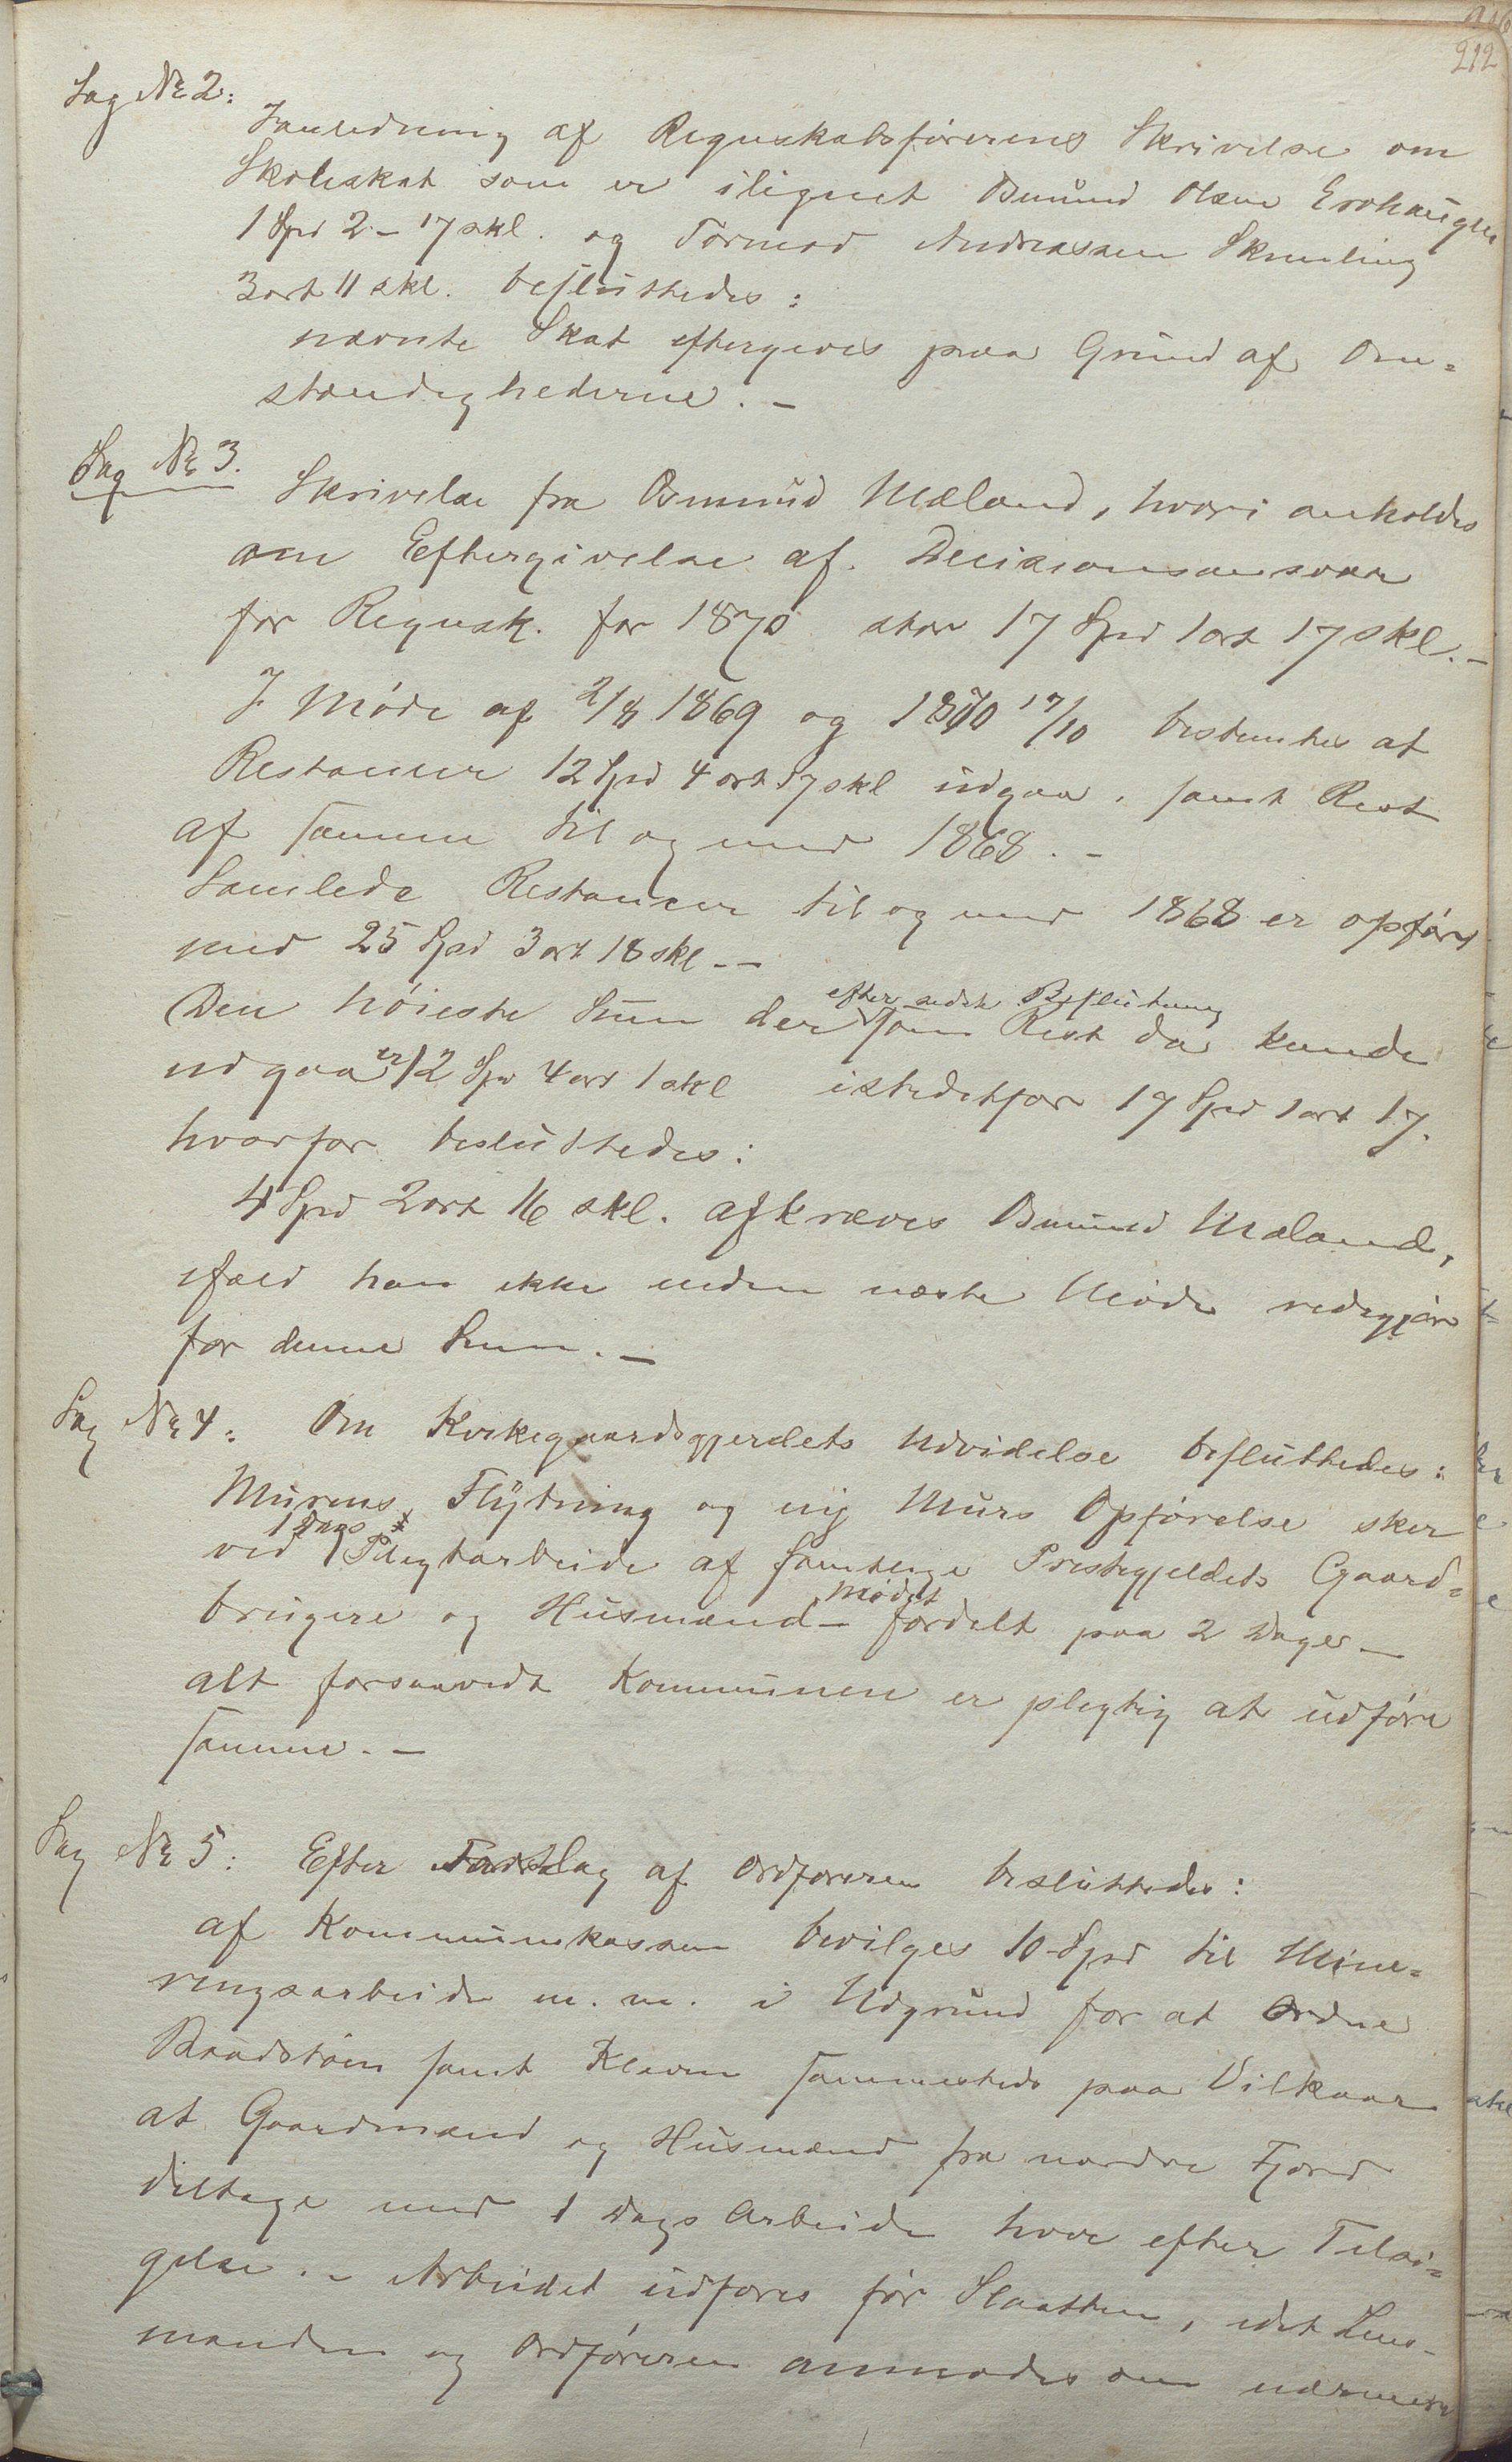 212
Sag No 2:
Ianledning af Regnskabsførerens Skrivelse om
Skoleskat som er ilignet Osmund Olsen Erohaugen
1 Spd 2 - 17 skl. og Tormod Andreassen Skemling
3 ort 11 skl. besluttedes:
nævnte Skat eftergives paa Grund af Om=
stændighederne. -
Sag No 3.
Skrivelse fra Osmund Mæland, hvori anholdes
om Eftergivelse af Decisionsansvar
for Regnsk. for 1870 stor 17 Spd 1 ort 17 skl. -
I Møde af 2/8 1869 og 1870 17/10 bestemtes at
Restancer 12 Spd 4 ort 17 skl udgaa, samt Rest
af samme til og med 1868. -
Samlede Restancer til og med 1868 er opført
med 25 Spd 3 ort 18 skl. -
efter sidste Beslutning
Den høieste Sum der som Rest da kunde
udgaa er 12 Spd 4 ort 1 skl istedetfor 17 Spd 1 ort 17.
hvorfor besluttedes:
4 Spd 2 ort 16 skl. afkræves Osmund Mæland,
ifald han ikke inden næste Møde redegjør
for denne Sum. -
Sag No 4: Om Kirkegaardsgjerdets Udvidelse besluttedes:
Murens Flytning og ny Murs Opførelse sker
1 Dags
ved Pligtarbeide af samtlige Prestegjeldets Gaard=
Mødet
brugere og Husmænd - fordelt paa 2 Dage -
alt forsaavidt Kommunen er pligtig at udføre
samme. -
Sag No 5: Efter Forslag af Ordføreren besluttedes:
af Kommunekassen bevilges 10 Spd til Mine=
ringsarbeide m. m. i Udgrund for at Ordne
Baadstøen samt Kleven sammesteds paa Vilkaar
at Gaardmænd og Husmænd fra nordre Fjord
deltage med 1 Dags Arbeide hver efter Tilsi=
gelse. - Arbeidet udføres før Slaatten, idet Lens-
manden og Ordføreren anmodes om nærmere